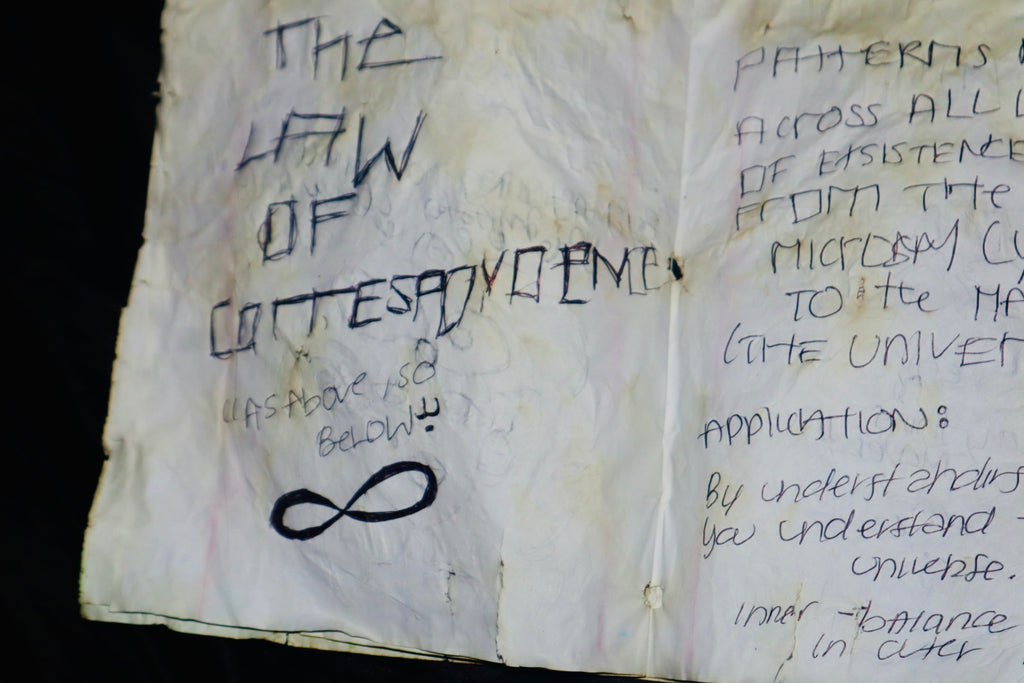 THE
LAW
OF
CORRESPONDENCE
"AS Above, SO
BELOW"
PATTERNS
ACROSS ALL
OF EXSISTENCE
FROM THE
TO the
(THE UNIVER
APPLICATION:
By understanding
you understand
universe.
inner - balance
in outer